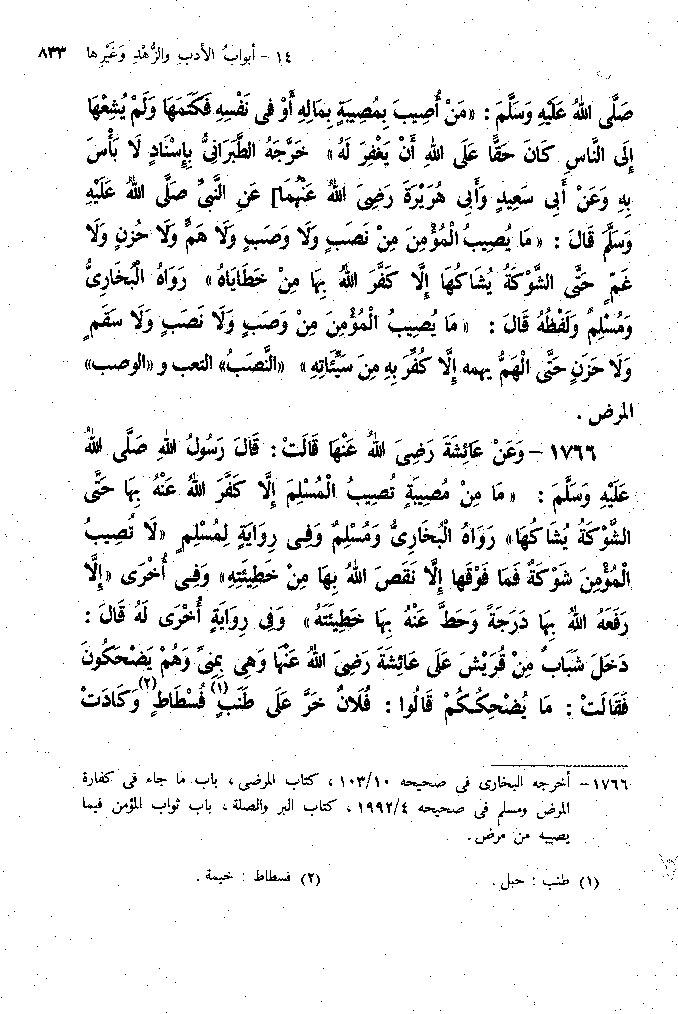 ١٤ - أبوابُ الأدبِ والزُّهْدِ وَغَيْرِها ٨٣٣
صَلَّى اللهُ عَلَيْهِ وَسَلَّمَ : «مَنْ أُصِيبَ بِمُصِيبَةٍ بِمَالِهِ أَوْ فى نَفْسِهِ فَكَتَمَهَا وَلَمْ يُشِعْهَا
إِلَى النَّاسِ كَانَ حَقًّا عَلَى اللهِ أَنْ يَغْفِرَ لَهُ» خَرَّجَهُ الطَّبَرَانِىُّ بِإِسْنَادٍ لَا بَأْسَ
بِهِ وَعَنْ أَبِى سَعِيدٍ وَأَبِى هُرَيْرَةَ رَضِىَ اللهُ عَنْهُمَا] عَنِ النَّبِىِّ صَلَّى اللهُ عَلَيْهِ
وَسَلَّمَ قَالَ : «مَا يُصِيبُ الْمُؤْمِنَ مِنْ نَصَبٍ وَلَا وَصَبٍ وَلَا هَمٍّ وَلَا حُزْنٍ وَلَا
غَمٍّ حَتَّى الشَّوْكَةُ يُشَاكُهَا إِلَّا كَفَّرَ اللهُ بِهَا مِنْ خَطَايَاهُ» رَوَاهُ الْبُخَارِىُّ
وَمُسْلِمٌ وَلَفْظُهُ قَالَ : «مَا يُصِيبُ الْمُؤْمِنَ مِنْ وَصَبٍ وَلَا نَصَبٍ وَلَا سَقَمٍ
وَلَا حَزَنٍ حَتَّى الْهَمُّ يهمه إِلَّا كُفِّرَ بِهِ مِنْ سَيِّئَاتِهِ» «النَّصَبُ» التعب و «الوصب»
المرض .
١٧٦٦ - وَعَنْ عَائِشَةَ رَضِىَ اللهُ عَنْهَا قَالَتْ : قَالَ رَسُولُ اللهِ صَلَّى اللهُ
عَلَيْهِ وَسَلَّمَ : «مَا مِنْ مُصِيبَةٍ تُصِيبُ الْمُسْلِمَ إِلَّا كَفَّرَ اللهُ عَنْهُ بِهَا حَتَّى
الشَّوْكَةُ يُشَاكُهَا» رَوَاهُ الْبُخَارِىُّ وَمُسْلِمٌ وَفِى رِوَايَةٍ لِمُسْلِمٍ «لَا تُصِيبُ
الْمُؤْمِنَ شَوْكَةٌ فَمَا فَوْقَهَا إِلَّا نَقَصَ اللهُ بِهَا مِنْ خَطِيئَتِهِ» وَفِى أُخْرَى «إِلَّا
رَفَعَهُ اللهُ بِهَا دَرَجَةً وَحَطَّ عَنْهُ بِهَا خَطِيئَتَهُ» وَفِى رِوَايَةٍ أُخْرَى لَهُ قَالَ :
دَخَلَ شَبَابٌ مِنْ قُرَيْشَ عَلَى عَائِشَةَ رَضِىَ اللهُ عَنْهَا وَهِىَ بِمِنًى وَهُمْ يَضْحَكُونَ
فَقَالَتْ : مَا يُضْحِكُكُمْ قَالُوا : فُلَانٌ خَرَّ عَلَى طَنَبِ(١) فُسْطَاطٍ(٢) وَكَادَتْ
١٧٦٦ - أخرجه البخارى فى صحيحه ١٠٣/١٠ ، كتاب المرضى ، باب ما جاء فى كفارة
المرض ومسلم فى صحيحه ١٩٩٢/٤ ، كتاب البر والصلة ، باب ثواب المؤمن فيما
يصيبه من مرض .
(١) طنب : حبل . (٢) فسطاط : خيمة .